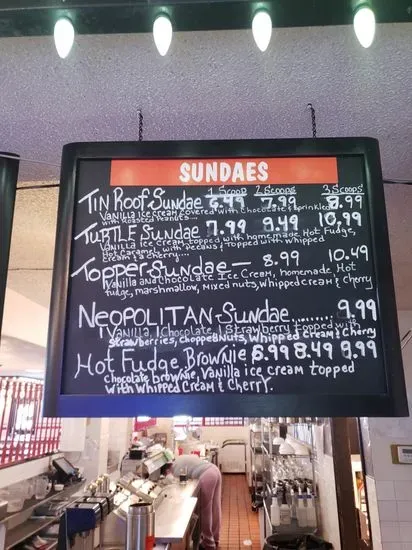 SUNDAES
1 Scoop 2 Scoops 3 Scoops
Tin Roof Sundae 6.49 7.99 8.99
Vanilla ice cream covered with chocolate & sprinkled
with Roasted Peanuts...
Turtle Sundae 7.99 8.49 10.99
Vanilla ice cream topped with homemade Hot Fudge,
Hot Caramel with Pecans & topped with Whipped
cream & a cherry....
Topper Sundae — 8.99 10.49
Vanilla and Chocolate Ice Cream, homemade Hot
fudge, marshmallow, Mixed nuts, whipped cream & cherry
Neopolitan Sundae........ 9.99
1 Vanilla, 1 Chocolate, 1 Strawberry topped with
strawberries, chopped Nuts, Whipped Cream & Cherry
Hot Fudge Brownie 6.99 8.49 9.99
chocolate brownie, Vanilla ice cream topped
with Whipped Cream & Cherry.